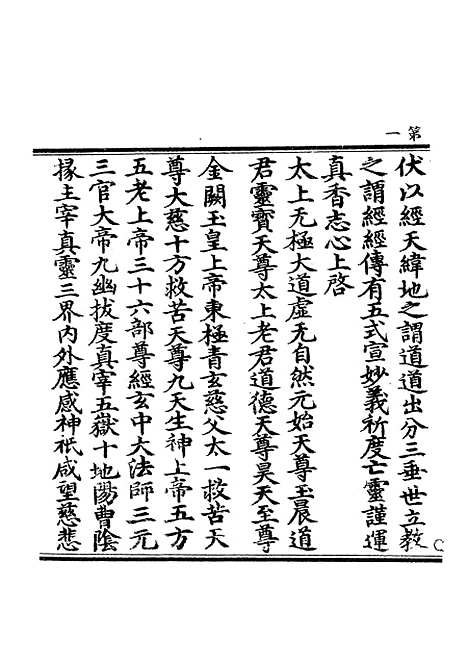 第一
伏以經天緯地之謂道道出分三垂世立教
之謂經經傳有五式宣妙義祈度亡靈謹運
真香志心上啓
太上无極大道虛无自然元始天尊玉晨道
君靈寶天尊太上老君道德天尊昊天至尊
金闕玉皇上帝東極青玄慈父太一救苦天
尊大慈十方救苦天尊九天生神上帝五方
五老上帝三十六部尊經玄中大法師三元
三官大帝九幽拔度真宰五嶽十地陽曹陰
掾主宰真靈三界內外應感神祇咸望慈悲